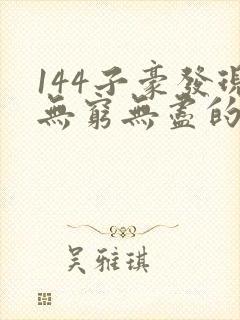 144子豪發現
無窮無盡的
吳雅琪